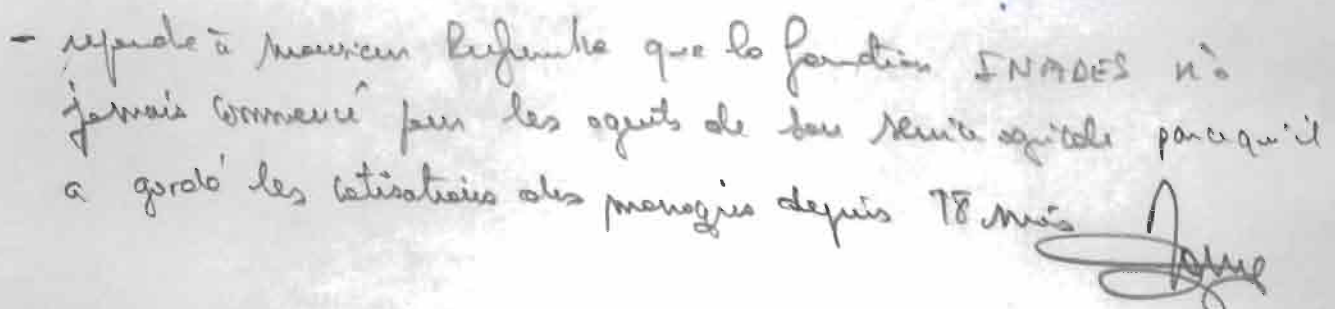 - répondre à monsieur que la formation INADES n'a
jamais commencé pour les agents de son service agricole parcequ'il
a gardé les cotisations des depuis 18 mois